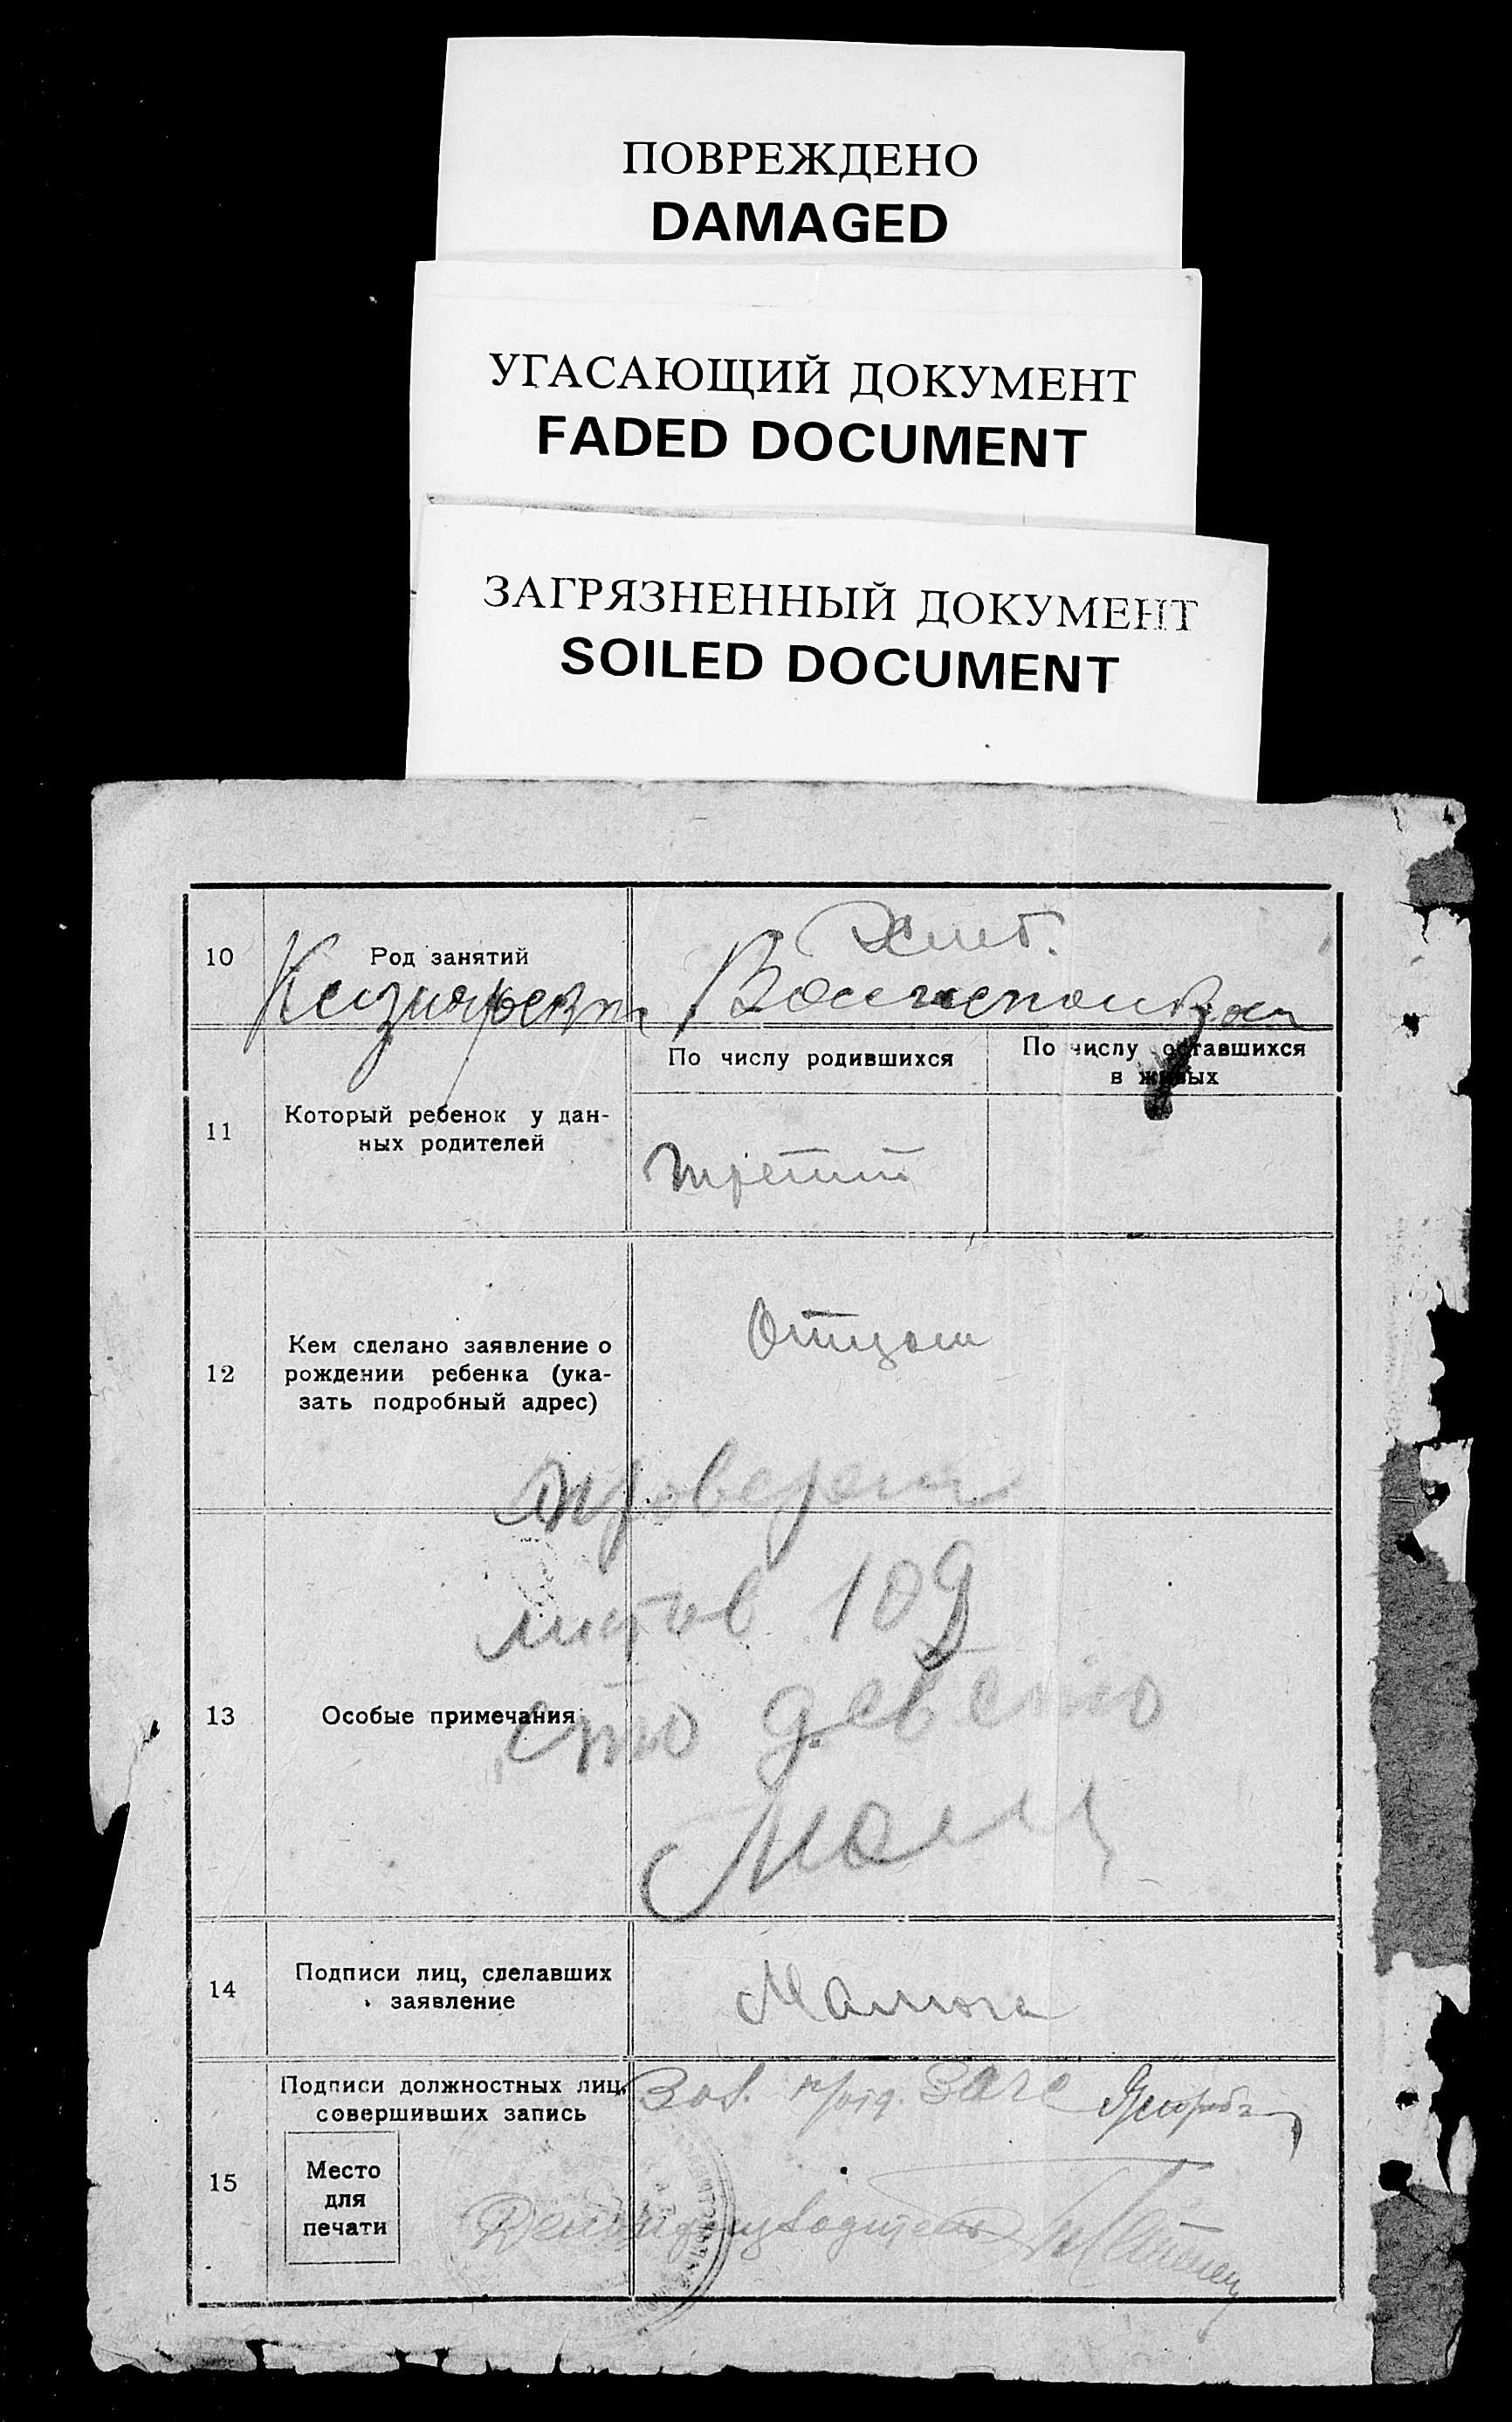 ПОВРЕЖДЕНО
DAMAGED
УГАСАЮЩИЙ ДОКУМЕНТ
FADED DOCUMENT
ЗАГРЯЗНЕННЫЙ ДОКУМЕНТ
SOILED DOCUMENT
10
Род занятий
11
Который ребенок у дан-
ных родителей
По числу родившихся
По числу оставшихся
в живых
третий
12
Кем сделано заявление о
рождении ребенка (ука-
зать подробный адрес)
Отцом
проверен
листов 109
сто девето
13
Особые примечания
14
Подписи лиц, сделавших
заявление
15
Подписи должностных лиц,
совершивших запись
Зав. Загс
Место
для
печати
Делопроизводитель